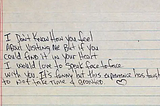 I Don't Know How you feel
About Visiting Me But if you
could find it in your Heart
I would love to speak face to face
with you. It's funny but this experience has taught
to Not take time 4 granted